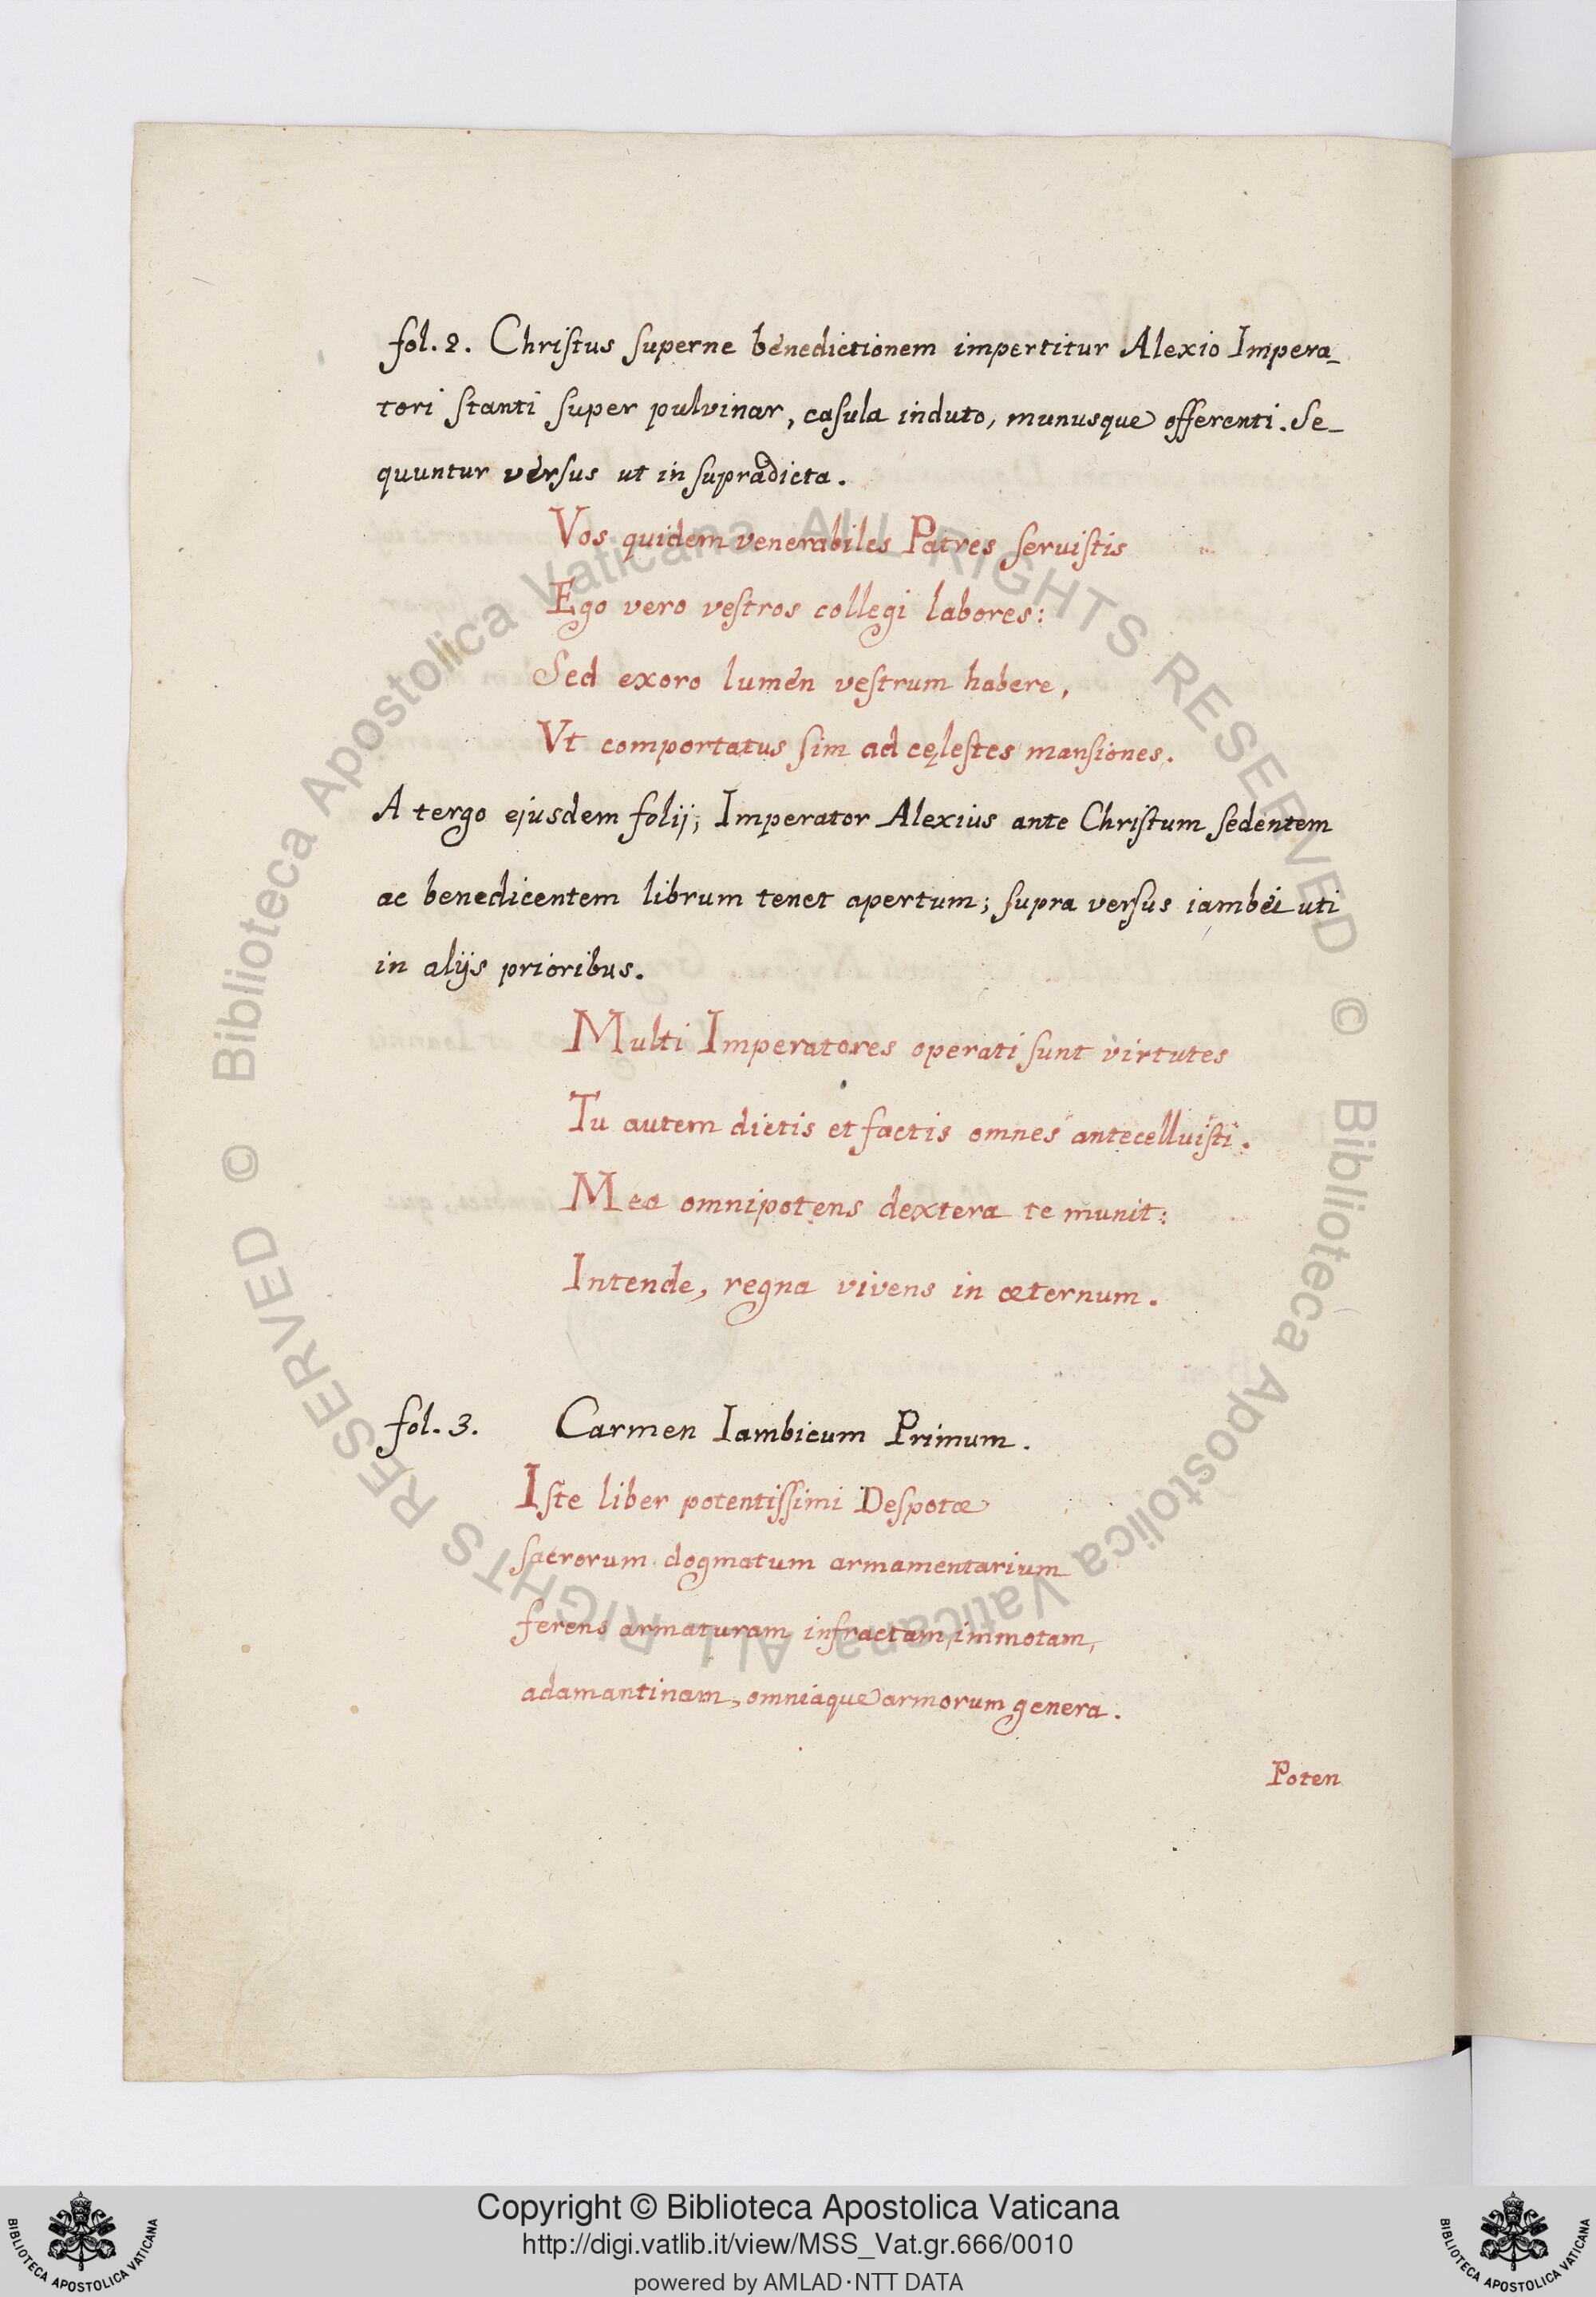 fol. 2. Christus superne benedictionem impertitur Alexio Impera_
tori stanti super pulvinar, casula induto, munusque offerenti. Se_
quuntur versus ut in supradicta.
Vos quidem venerabiles Patres servistis
Ego vero vestros collegi labores:
Sed exoro lumen vestrum habere,
Vt comportatus sim ad cęlestes mansiones.
A tergo ejusdem folij; Imperator Alexius ante Christum sedentem
ac benedicentem librum tenet apertum; supra versus iambici uti
in alijs prioribus.
Multi Imperatores operati sunt virtutes
Tu autem dictis et factis omnes antecelluisti.
Mea omnipotens dextera te munit:
Intende, regna vivens in æternum.
fol. 3. Carmen Iambicum Primum.
Iste liber potentissimi Despotæ
sacrorum dogmatum armamentarium
ferens armaturam infractam, immotam,
adamantinam, omniaque armorum genera.
Poten
© Biblioteca Apostolica Vaticana ALL RIGHTS RESERVED
© Biblioteca Apostolica Vaticana ALL RIGHTS RESERVED
Copyright © Biblioteca Apostolica Vaticana
http://digi.vatlib.it/view/MSS_Vat.gr.666/0010
powered by AMLAD·NTT DATA
BIBLIOTECA APOSTOLICA VATICANA
BIBLIOTECA APOSTOLICA VATICANA